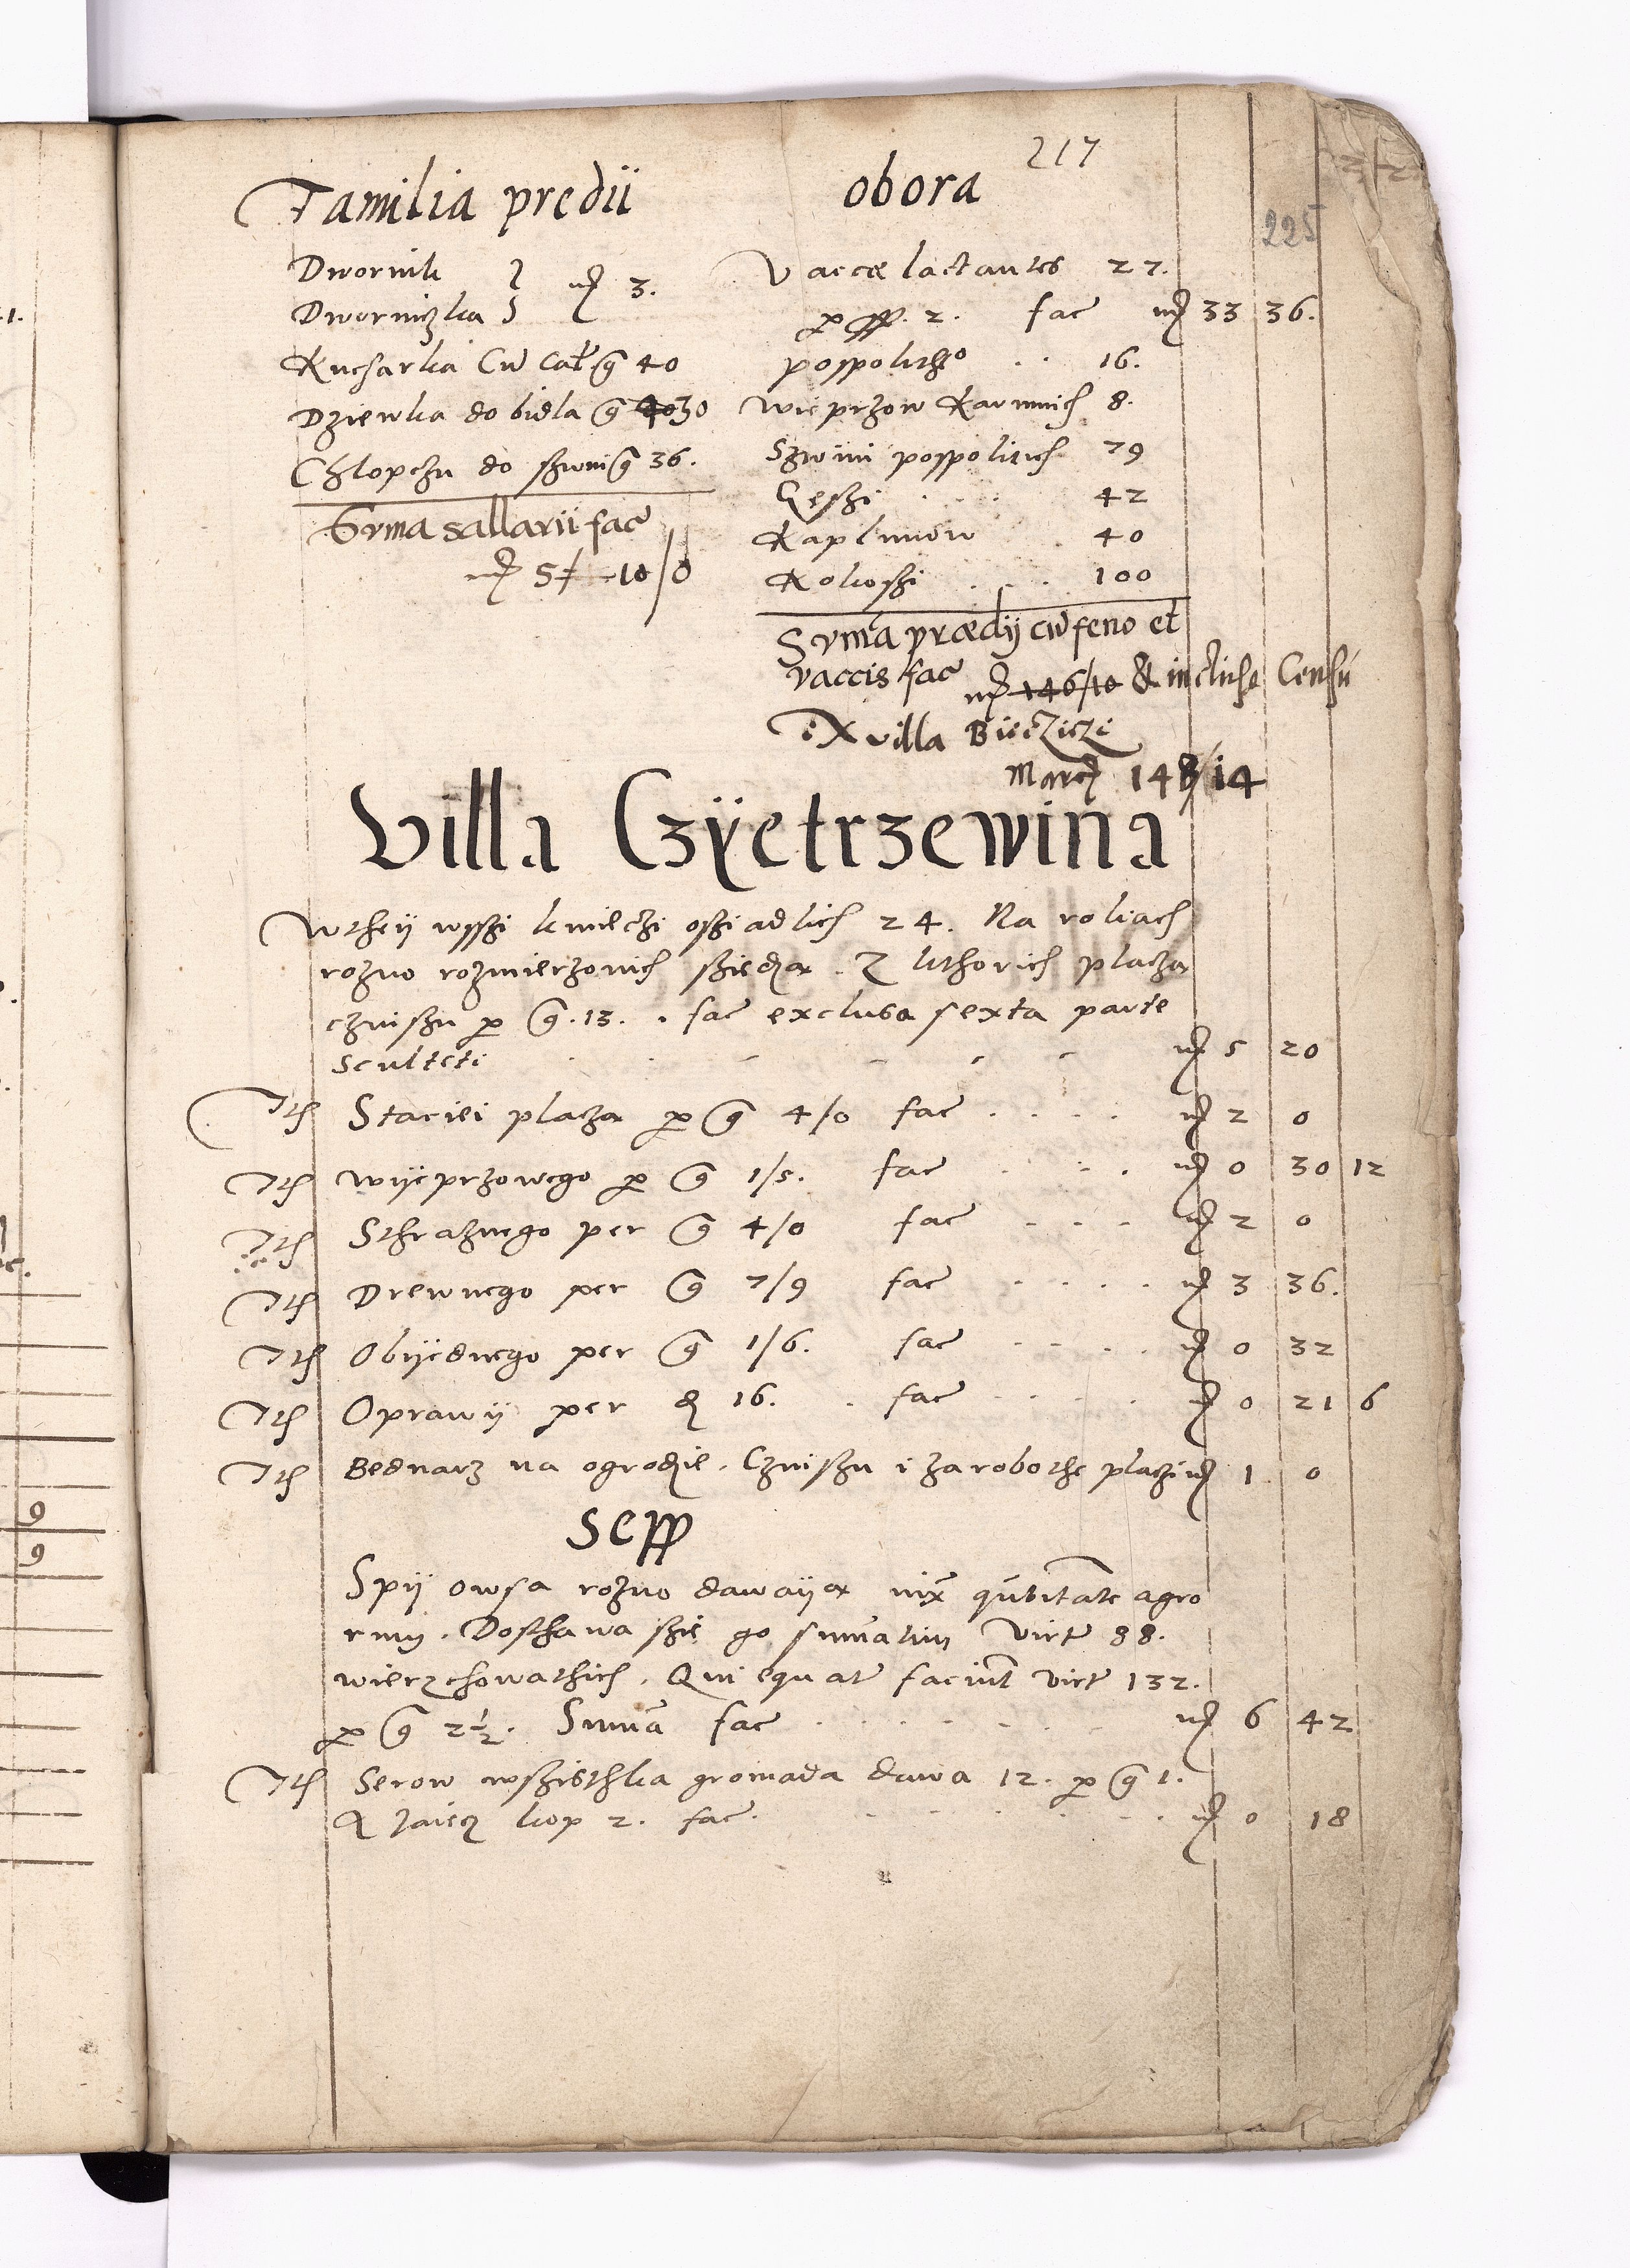 217
225
Familia predii
Dwornik } mr 3.
Dworniczka }
Kucharka Cu Cal g 40
Dziewka do bidla g 30
Chlopczu do szwini g 36.
Suma sallarii fac
mr 5 10/0
obora
Vaccæ lactantes 27.
fac mr 33 36.
pospolithego 16.
wieprzow Karmnich 8.
Szwini pospolitich 79
Gęszi 42
Kaplunow 40
Kokoszi 100
Suma prædij cu feno et
vaccis fac mr 146/10 & incluse Censu
Ex villa Bierzicze
Marc 148/14
Villa Czÿetrzewina
Wtheÿ wsszi kmieczi osziadlich 24. Na roliach
rozno rozmierzonich sziedza. Z kthorich placza
czinszu per g. 13. fac exclusa sexta parte
Sculteti mr 5 20
Ith Staciei placza per g 4/0 fac mr 2 0
Ith wÿeprzowego per g 1/5. fac mr 0 30 12
Ith Sthraznego per g 4/0 fac mr 2 0
Ith Drewnego per g 7/9 fac mr 3 36.
Ith Obÿednego per g 1/6. fac mr 0 32
Ith Oprawÿ per d 16. fac mr 0 21 6
Ith Bednarz na ogrodzie. Czinszu i za robothe placzi mr 1 0
Sepp
Spÿ owsa rozno dawaÿa iux qubitate agro
rum. Dosthawa szie go sumatim virt 88.
wierzchowathich. Qui equat faciunt virt 132.
per g 2½. Suma fac mr 6 42
Ith Serow wszisthka gromada dawa 12. per g 1.
A Jaiecz kop 2. fac. mr 0 18